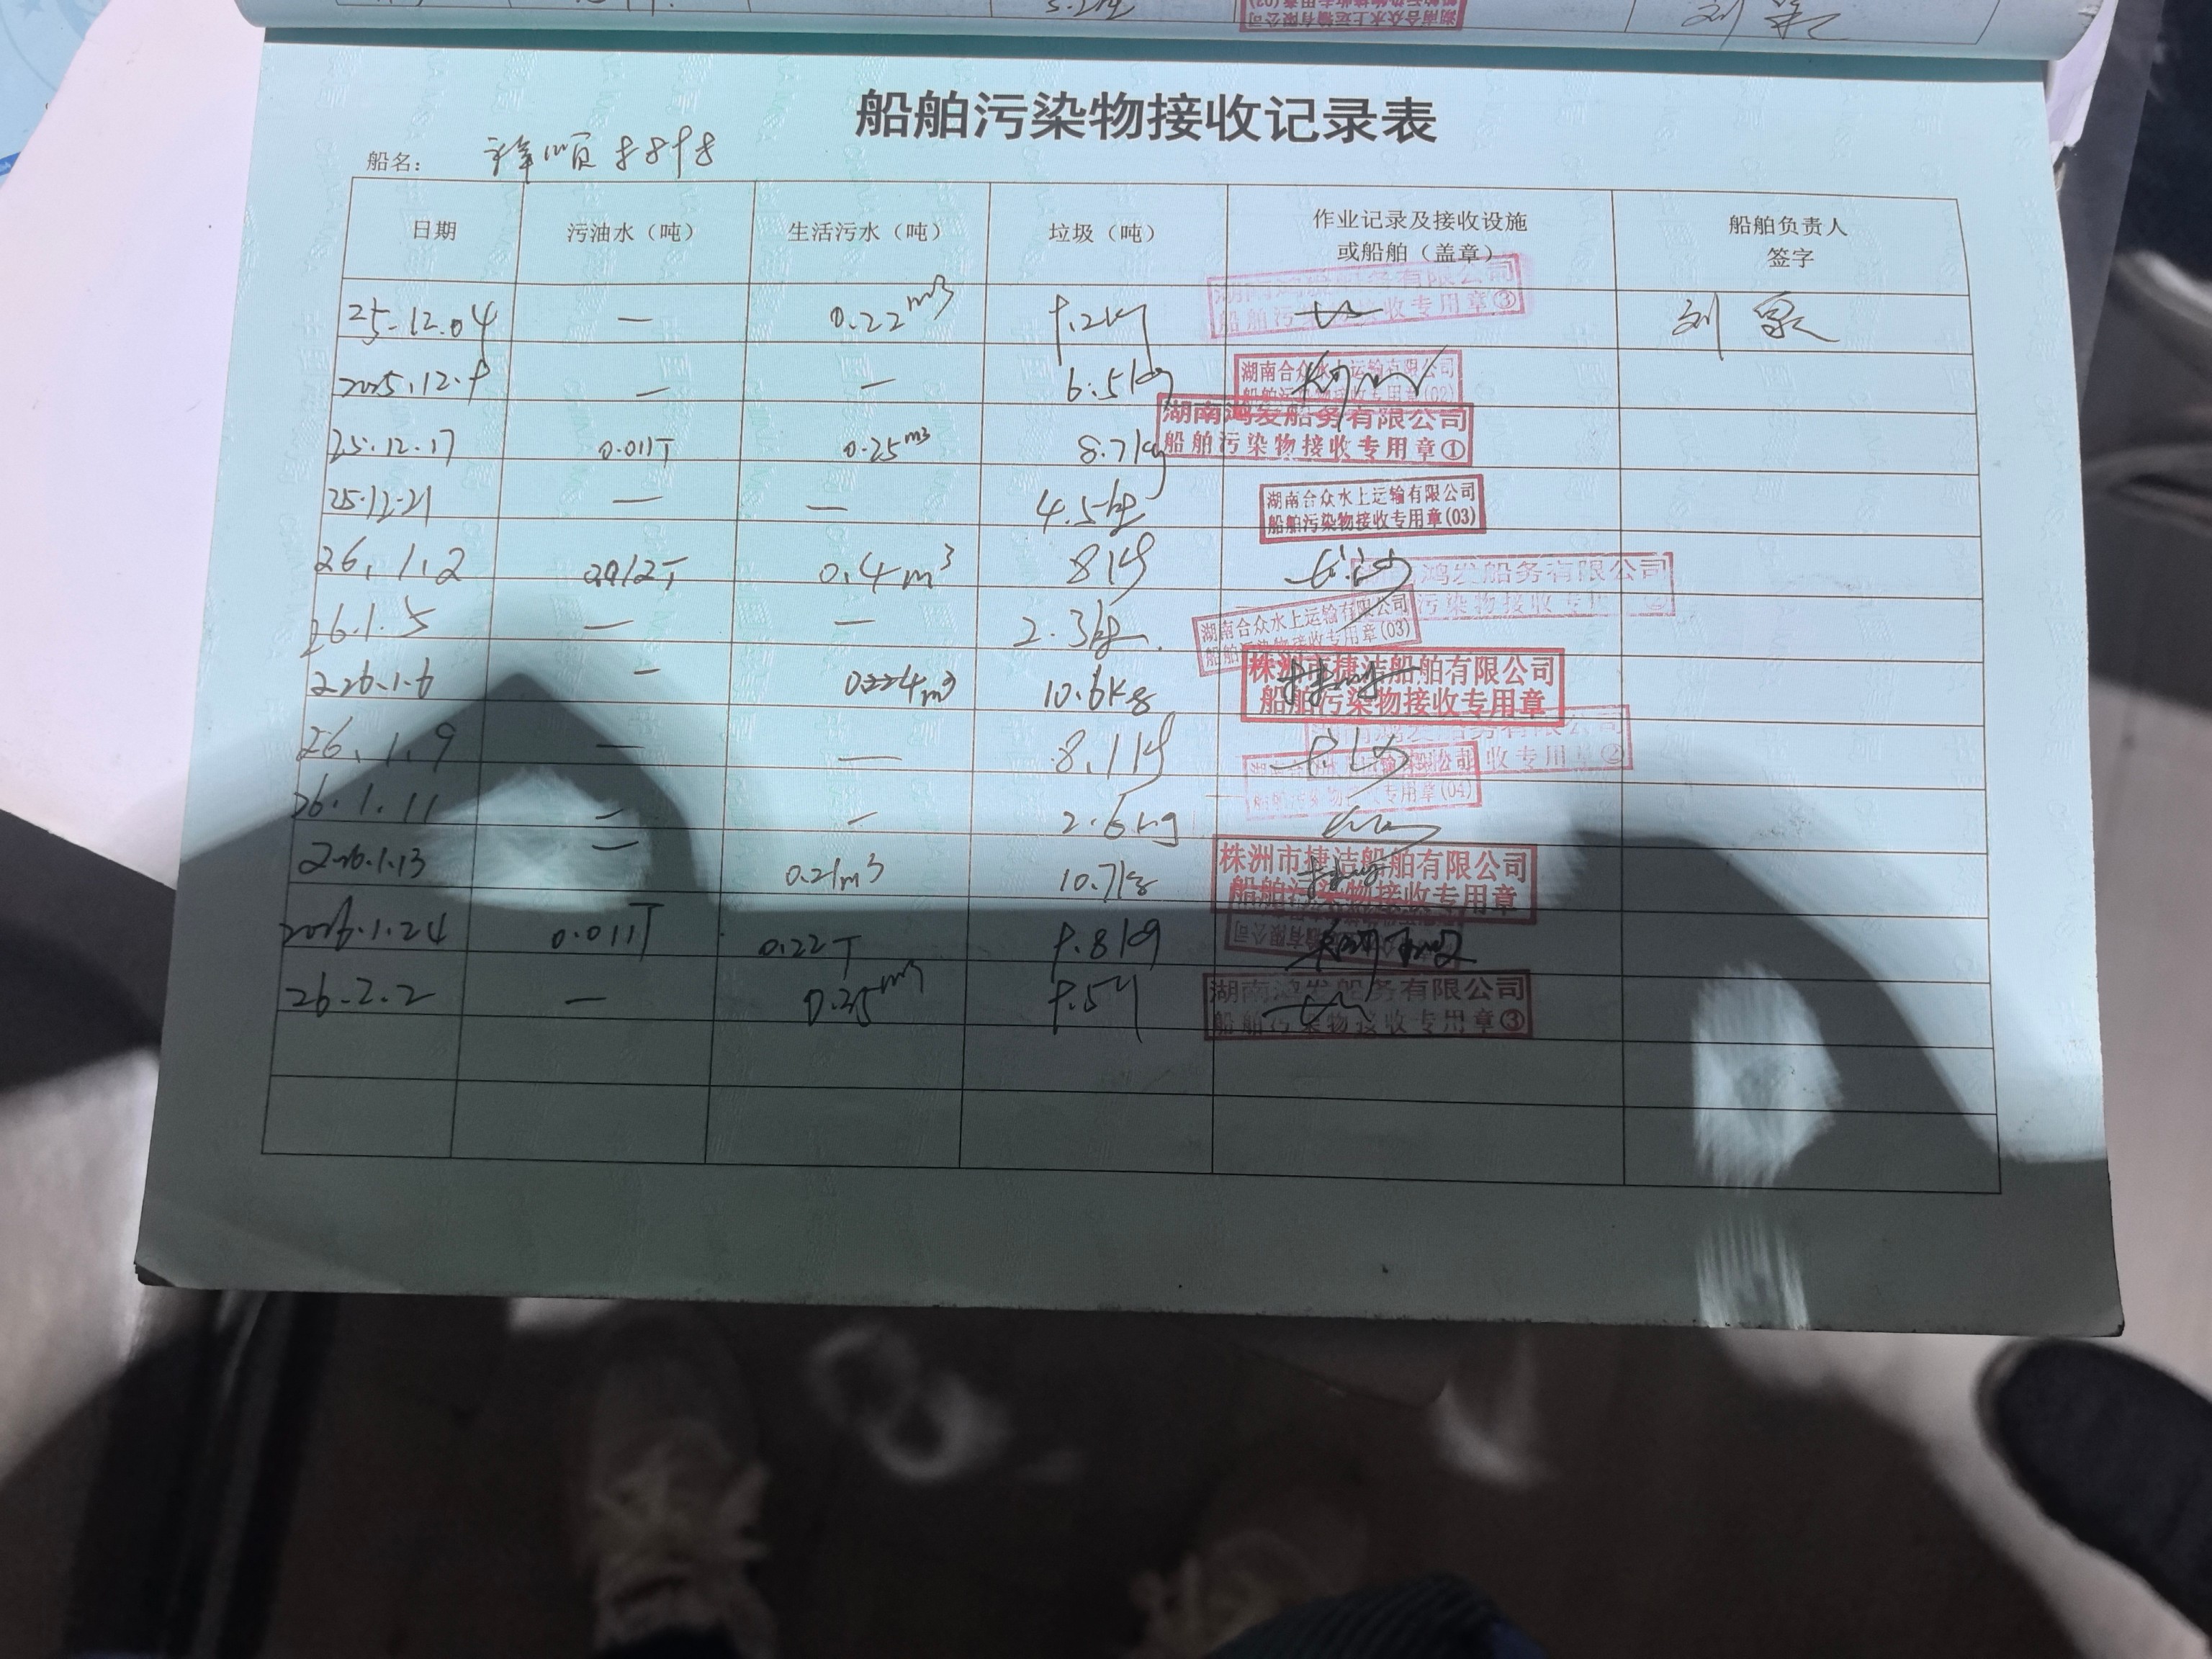 5.2kg
船舶污染物接收记录表
船名： 祥顺8898
日期 污油水（吨） 生活污水（吨） 垃圾（吨） 作业记录及接收设施或船舶（盖章） 船舶负责人签字
25.12.04 — 0.22m3 9.2kg 湖南鸿发船务有限公司 船舶污染物接收专用章③ 刘
2025.12.9 — — 6.5kg 湖南合众水上运输有限公司 船舶污染物接收专用章(02)
25.12.17 0.011T 0.25m3 8.7kg 湖南鸿发船务有限公司 船舶污染物接收专用章①
25.12.21 — — 4.5kg 湖南合众水上运输有限公司 船舶污染物接收专用章(03)
26.1.2 0.4m3 8kg 鸿发船务有限公司 污染物接收专用
26.1.5 — — 2.3kg 湖南合众水上运输有限公司 船舶污染物接收专用章(03)
2026.1.6 — 0.224m3 10.6kg 株洲市捷洁船舶有限公司 船舶污染物接收专用章
26.1.9 — — 8.1kg 船务有限公司 收专用章②
26.1.11 — — 2.6kg 运输有限公司 船舶污染物接收专用章(04)
2026.1.13 — 0.21m3 10.7kg 株洲市捷洁船舶有限公司 船舶污染物接收专用章
2026.1.24 0.011T 0.22T 9.8kg
26.2.2 — 0.35m3 9.5kg 湖南鸿发船务有限公司 船舶污染物接收专用章③